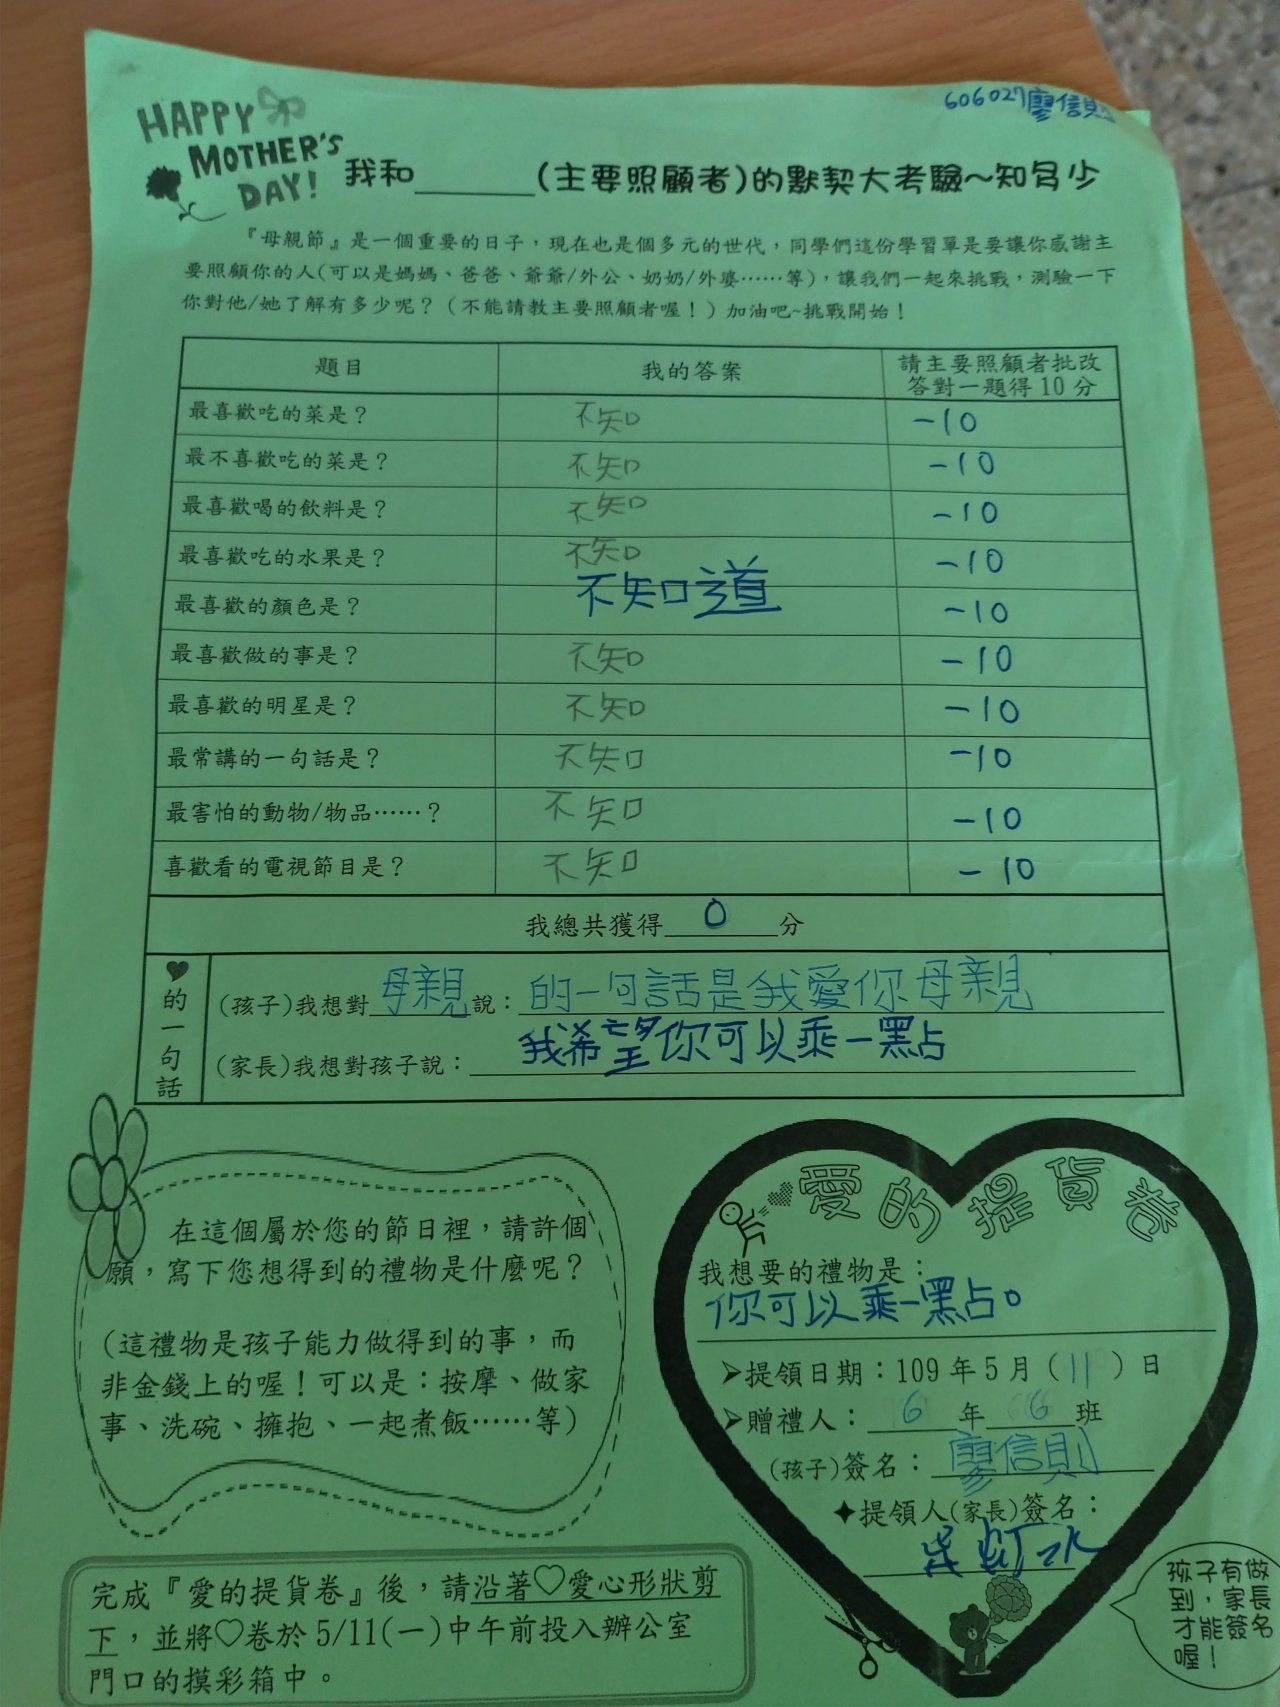 606027廖信則
HAPPY
MOTHER'S
DAY!
我和______(主要照顧者)的默契大考驗~知多少
『母親節』是一個重要的日子，現在也是個多元的世代，同學們這份學習單是要讓你感謝主
要照顧你的人(可以是媽媽、爸爸、爺爺/外公、奶奶/外婆……等)，讓我們一起來挑戰，測驗一下
你對他/她了解有多少呢？（不能請教主要照顧者喔！）加油吧~挑戰開始！
題目 我的答案 請主要照顧者批改
答對一題得10分
最喜歡吃的菜是？ 不知 -10
最不喜歡吃的菜是？ 不知 -10
最喜歡喝的飲料是？ 不知 -10
最喜歡吃的水果是？ 不知 -10
最喜歡的顏色是？ 不知道 -10
最喜歡做的事是？ 不知 -10
最喜歡的明星是？ 不知 -10
最常講的一句話是？ 不知 -10
最害怕的動物/物品……？ 不知 -10
喜歡看的電視節目是？ 不知 -10
我總共獲得 0 分
♥的一句話
(孩子)我想對母親說：的一句話是我愛你母親
(家長)我想對孩子說：我希望你可以乖一點
在這個屬於您的節日裡，請許個
願，寫下您想得到的禮物是什麼呢？
(這禮物是孩子能力做得到的事，而
非金錢上的喔！可以是：按摩、做家
事、洗碗、擁抱、一起煮飯……等)
愛的提貨卷
我想要的禮物是：
你可以乖一點。
➢提領日期：109年5月（11）日
➢贈禮人：6年6班
(孩子)簽名：廖信則
✦提領人(家長)簽名：
孩子有做
到，家長
才能簽名
喔！
完成『愛的提貨卷』後，請沿著♡愛心形狀剪
下，並將♡卷於5/11(一)中午前投入辦公室
門口的摸彩箱中。